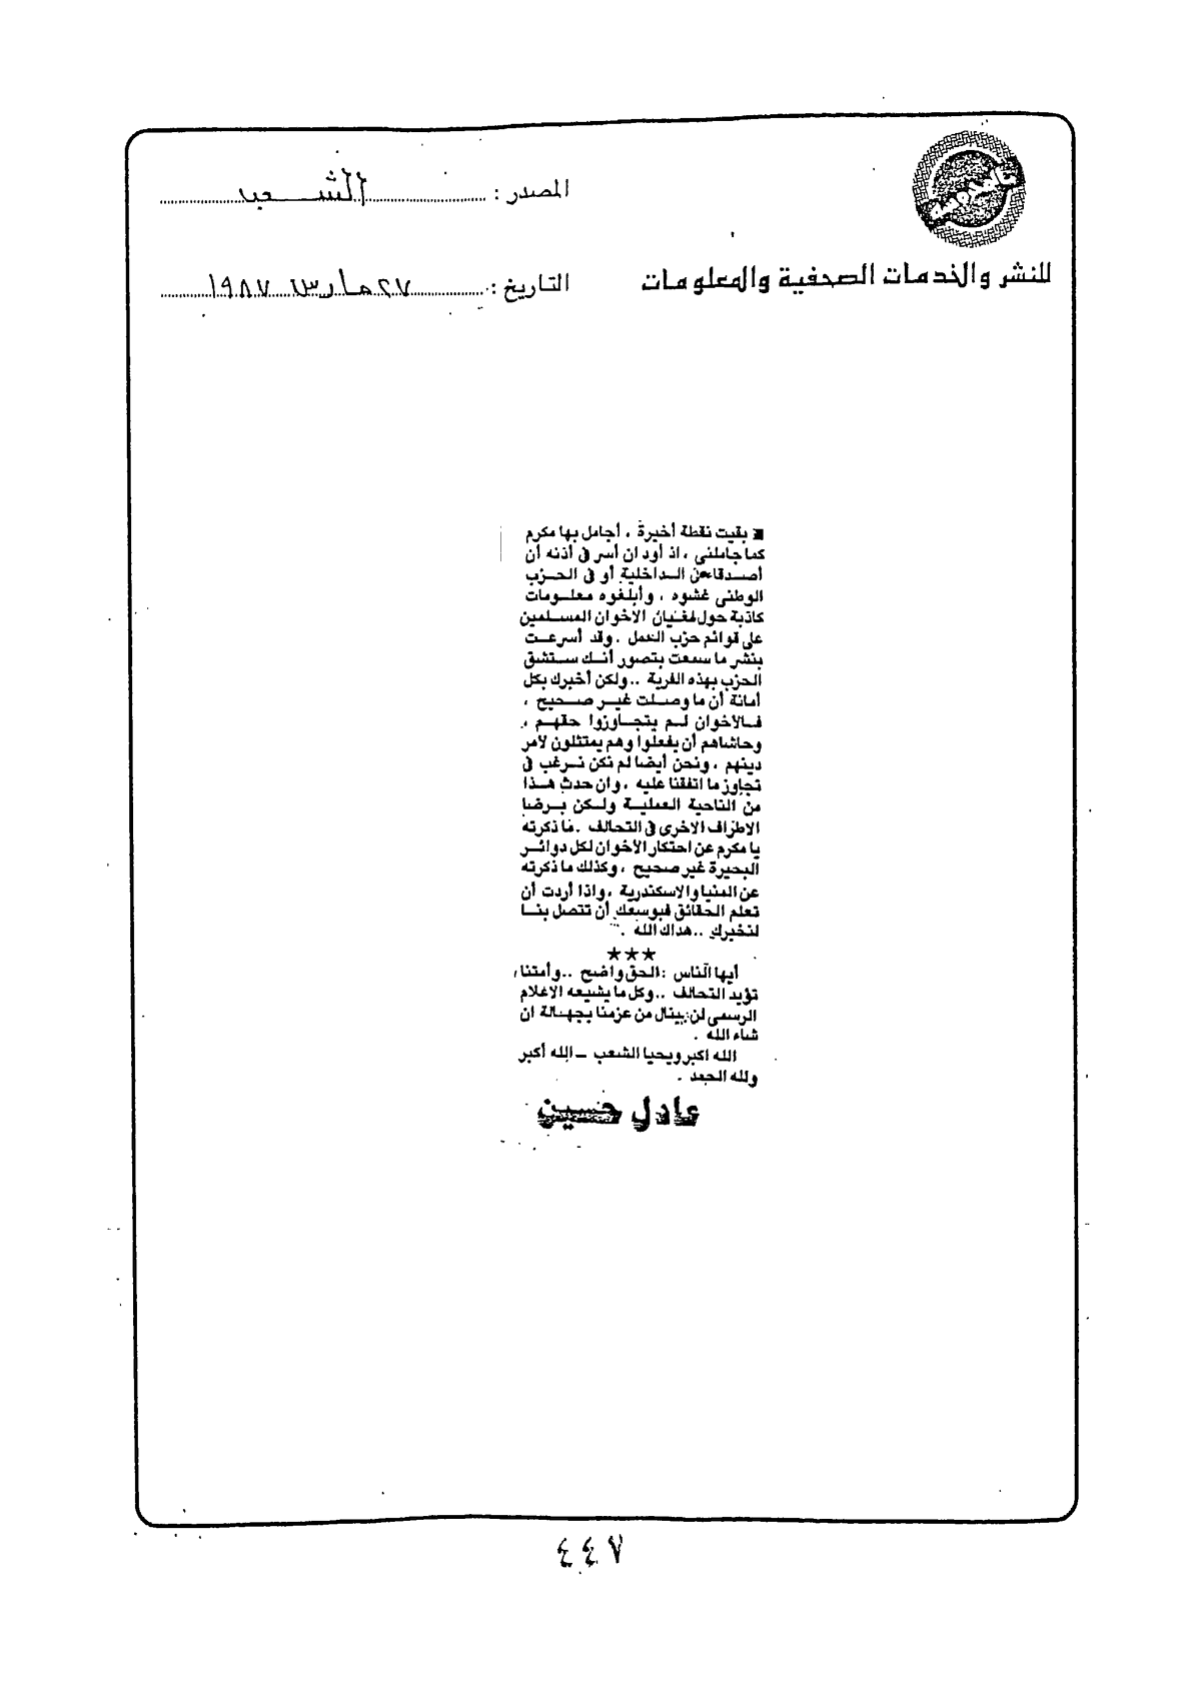 المصدر : الشعب
للنشر والخدمات الصحفية والمعلومات
التاريخ : ٢٧ مارس ١٩٨٧
بقيت نقطة أخيرة ، أجامل بها مكرم
كما جاملنى ، اذ أود ان أسر فى أذنه أن
أصدقاء من الداخلية أو فى الحزب
الوطنى غشوه ، وأبلغوه معلومات
كاذبة حول لغيان الأخوان المسلمين
على قوائم حزب العمل . وقد أسرعت
بنشر ما سمعت بتصور أنك ستشق
الحزب بهذه الفرية .. ولكن أخبرك بكل
أمانة أن ما وصلت غير صحيح ،
فالأخوان لم يتجاوزوا حقهم ،
وحاشاهم أن يفعلوا وهم يمتثلون لأمر
دينهم ، ونحن أيضا لم نكن نرغب فى
تجاوز ما اتفقنا عليه ، وان حدث هذا
من الناحية العملية ولكن برضا
الاطراف الاخرى فى التحالف . ما ذكرته
يا مكرم عن احتكار الأخوان لكل دوائر
البحيرة غير صحيح ، وكذلك ما ذكرته
عن المنيا والاسكندرية ، واذا أردت أن
تعلم الحقائق فبوسعك أن تتصل بنا
لنخبرك .. هداك الله .
★★★
أيها الناس : الحق واضح .. وأمتنا
تؤيد التحالف .. وكل ما يشيعه الاعلام
الرسمى لن ينال من عزمنا بجهالة ان
شاء الله .
الله اكبر ويحيا الشعب – الله أكبر
ولله الحمد .
عادل حسين
٤٤٧